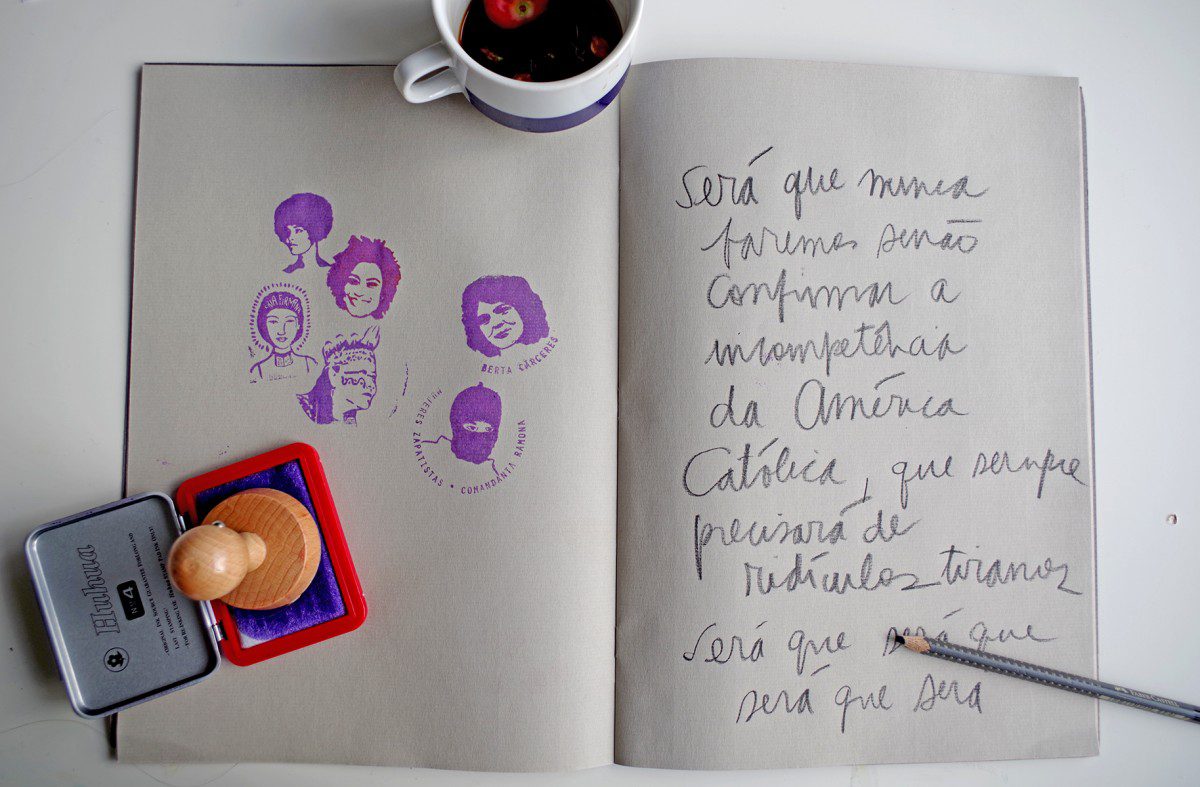 BERTA CÁRCERES
MUJERES ZAPATISTAS • COMANDANTA RAMONA
Huhua
No. 4
Será que nunca
faremos senão
confirmar a
incompetência
da América
Católica, que sempre
precisará de
ridículos tiranos
Será que será que
será que será